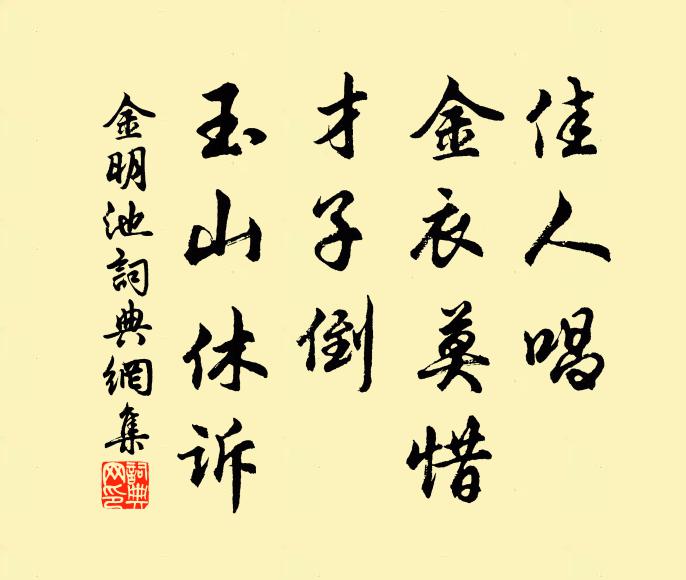 佳人唱
金衣莫惜
才子倒
玉山休诉
金明池詞典網集
詞典
网印